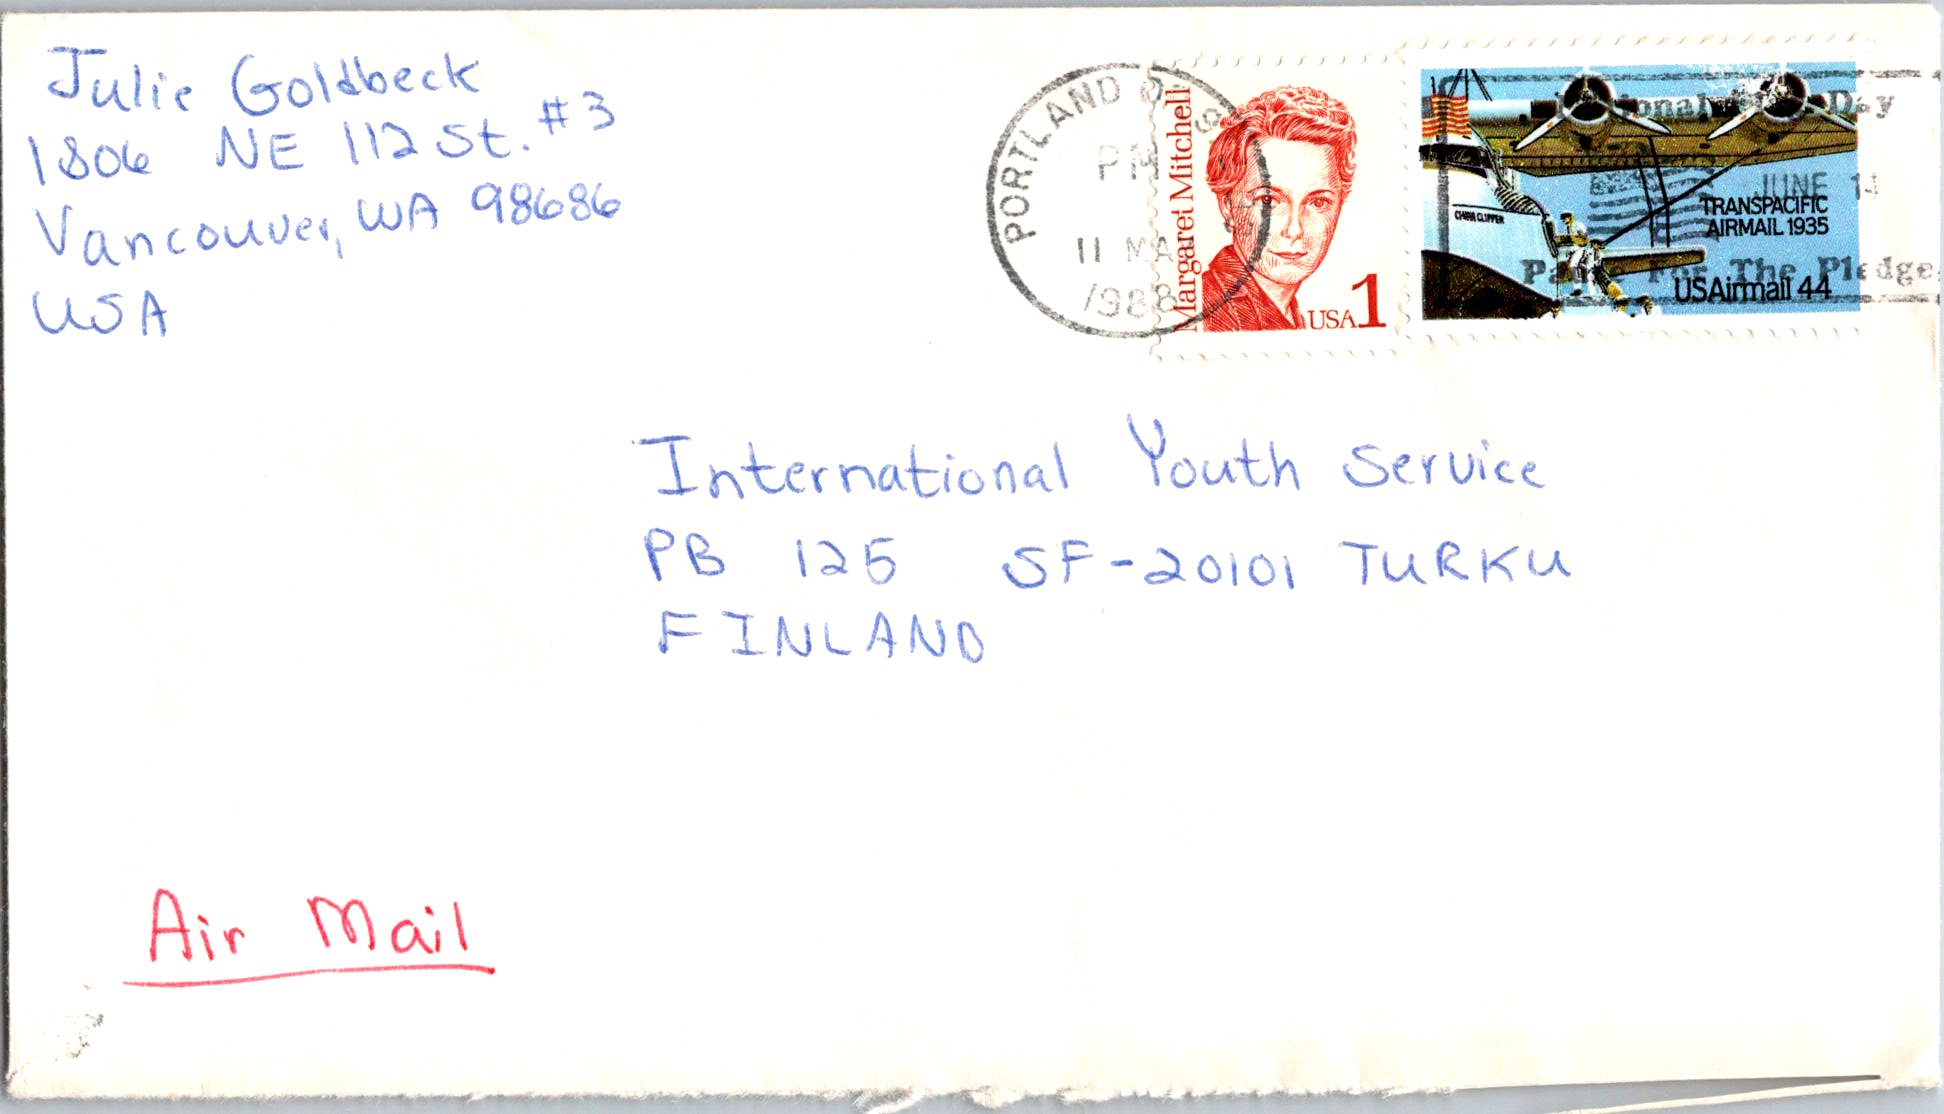 Julie Goldbeck
1806 NE 112 St. #3
Vancouver, WA 98686
USA
PORTLAND
PM
11 MA
1988
Margaret Mitchell
USA 1
CHINA CLIPPER
TRANSPACIFIC
AIRMAIL 1935
USAirmail 44
Day
JUNE 14
For The Pledge
International Youth Service
PB 125 SF-20101 TURKU
FINLAND
Air Mail